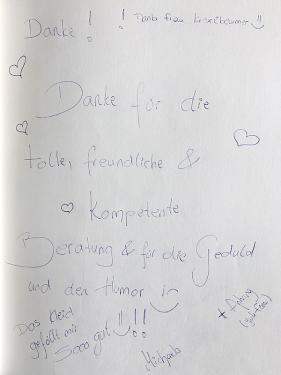 Danke! ! Danke Frau
Danke für die
tolle, freundliche &
kompetente
Beratung & für die Geduld
und den Humor :-)
Das Kleid
gefällt mir
Sooo gut :) !!
Michaela